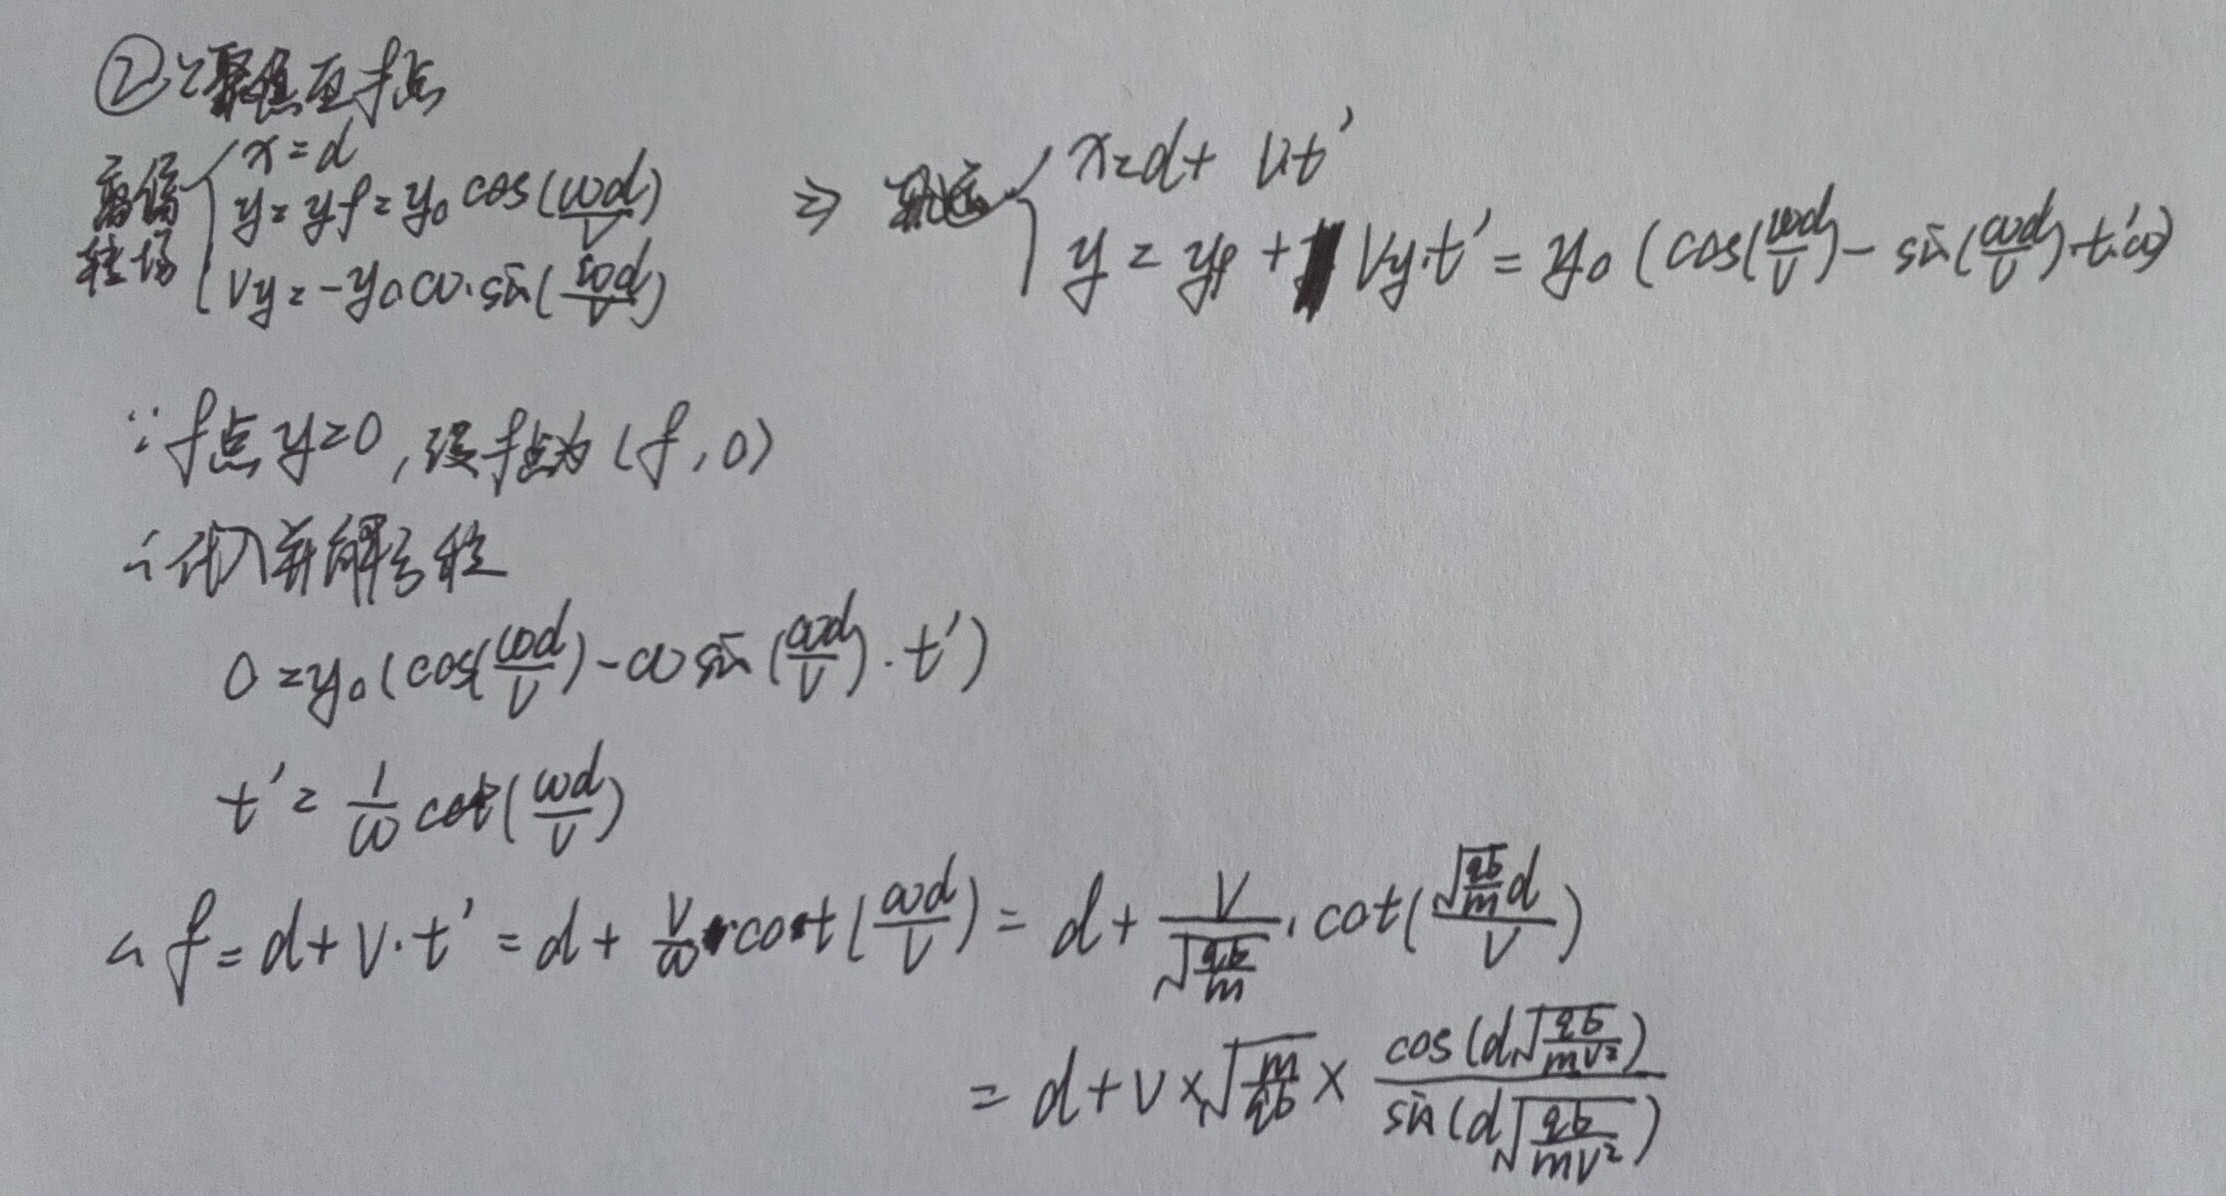 ②∵聚焦至f点
离偏转场 { x=d
y=yf=y₀cos(ωd/v)
Vy=-y₀ω·sin(ωd/v)
⇒ { x=d+v·t'
y=yf+Vy·t'=y₀(cos(ωd/v)-sin(ωd/v)·t'·ω)
∵f点y=0,设f点为(f,0)
∴代入并解方程
0=y₀(cos(ωd/v)-ωsin(ωd/v)·t')
t'=1/ω cot(ωd/v)
∴f=d+v·t'=d+v/ω·cot(ωd/v)=d+v/√(qb/m)·cot(√(qb/m)d/v)
=d+v×√(m/qb)×cos(d√(qb/mv²))/sin(d√(qb/mv²))